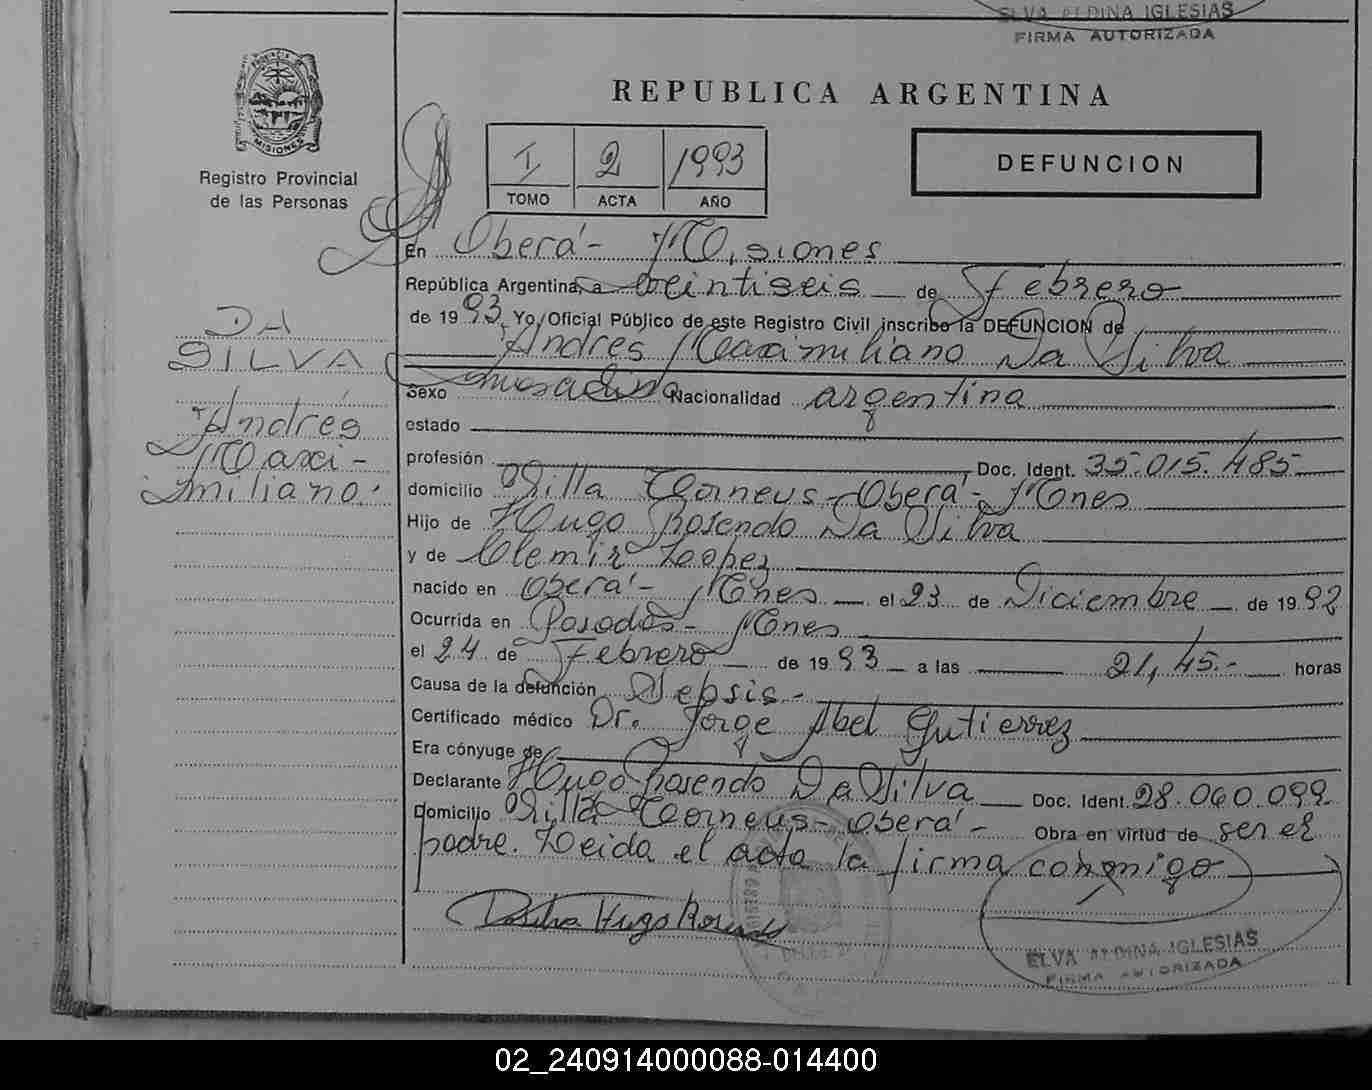 ELVA ALDINA IGLESIAS
FIRMA AUTORIZADA
PROVINCIA DE
MISIONES
Registro Provincial
de las Personas
REPUBLICA ARGENTINA
I 2 1993
TOMO ACTA AÑO
DEFUNCION
En Oberá - Misiones
República Argentina, a veintiseis de Febrero
de 1993. Yo, Oficial Público de este Registro Civil inscribo la DEFUNCION de
Andrés Maximiliano Da Silva
DA
SILVA
Andrés
Maxi-
miliano.
Sexo masculino Nacionalidad argentina
estado
profesión Doc. Ident. 35.015.485
domicilio Villa - Oberá - Mnes
Hijo de Hugo Rosendo Da Silva
y de Clemir Lopez
nacido en Oberá - Mnes el 23 de Diciembre de 1992
Ocurrida en Posadas - Mnes
el 24 de Febrero de 1993 a las 21,45.- horas
Causa de la defunción Sepsis -
Certificado médico Dr. Jorge Abel Gutierrez
Era cónyuge de
Declarante Hugo Rosendo Da Silva Doc. Ident. 28.060.099
Domicilio Villa - Oberá - Obra en virtud de ser el
padre. Leida el acta la firma conmigo
Da Silva Hugo Rosendo
ELVA ALDINA IGLESIAS
FIRMA AUTORIZADA
02_240914000088-014400